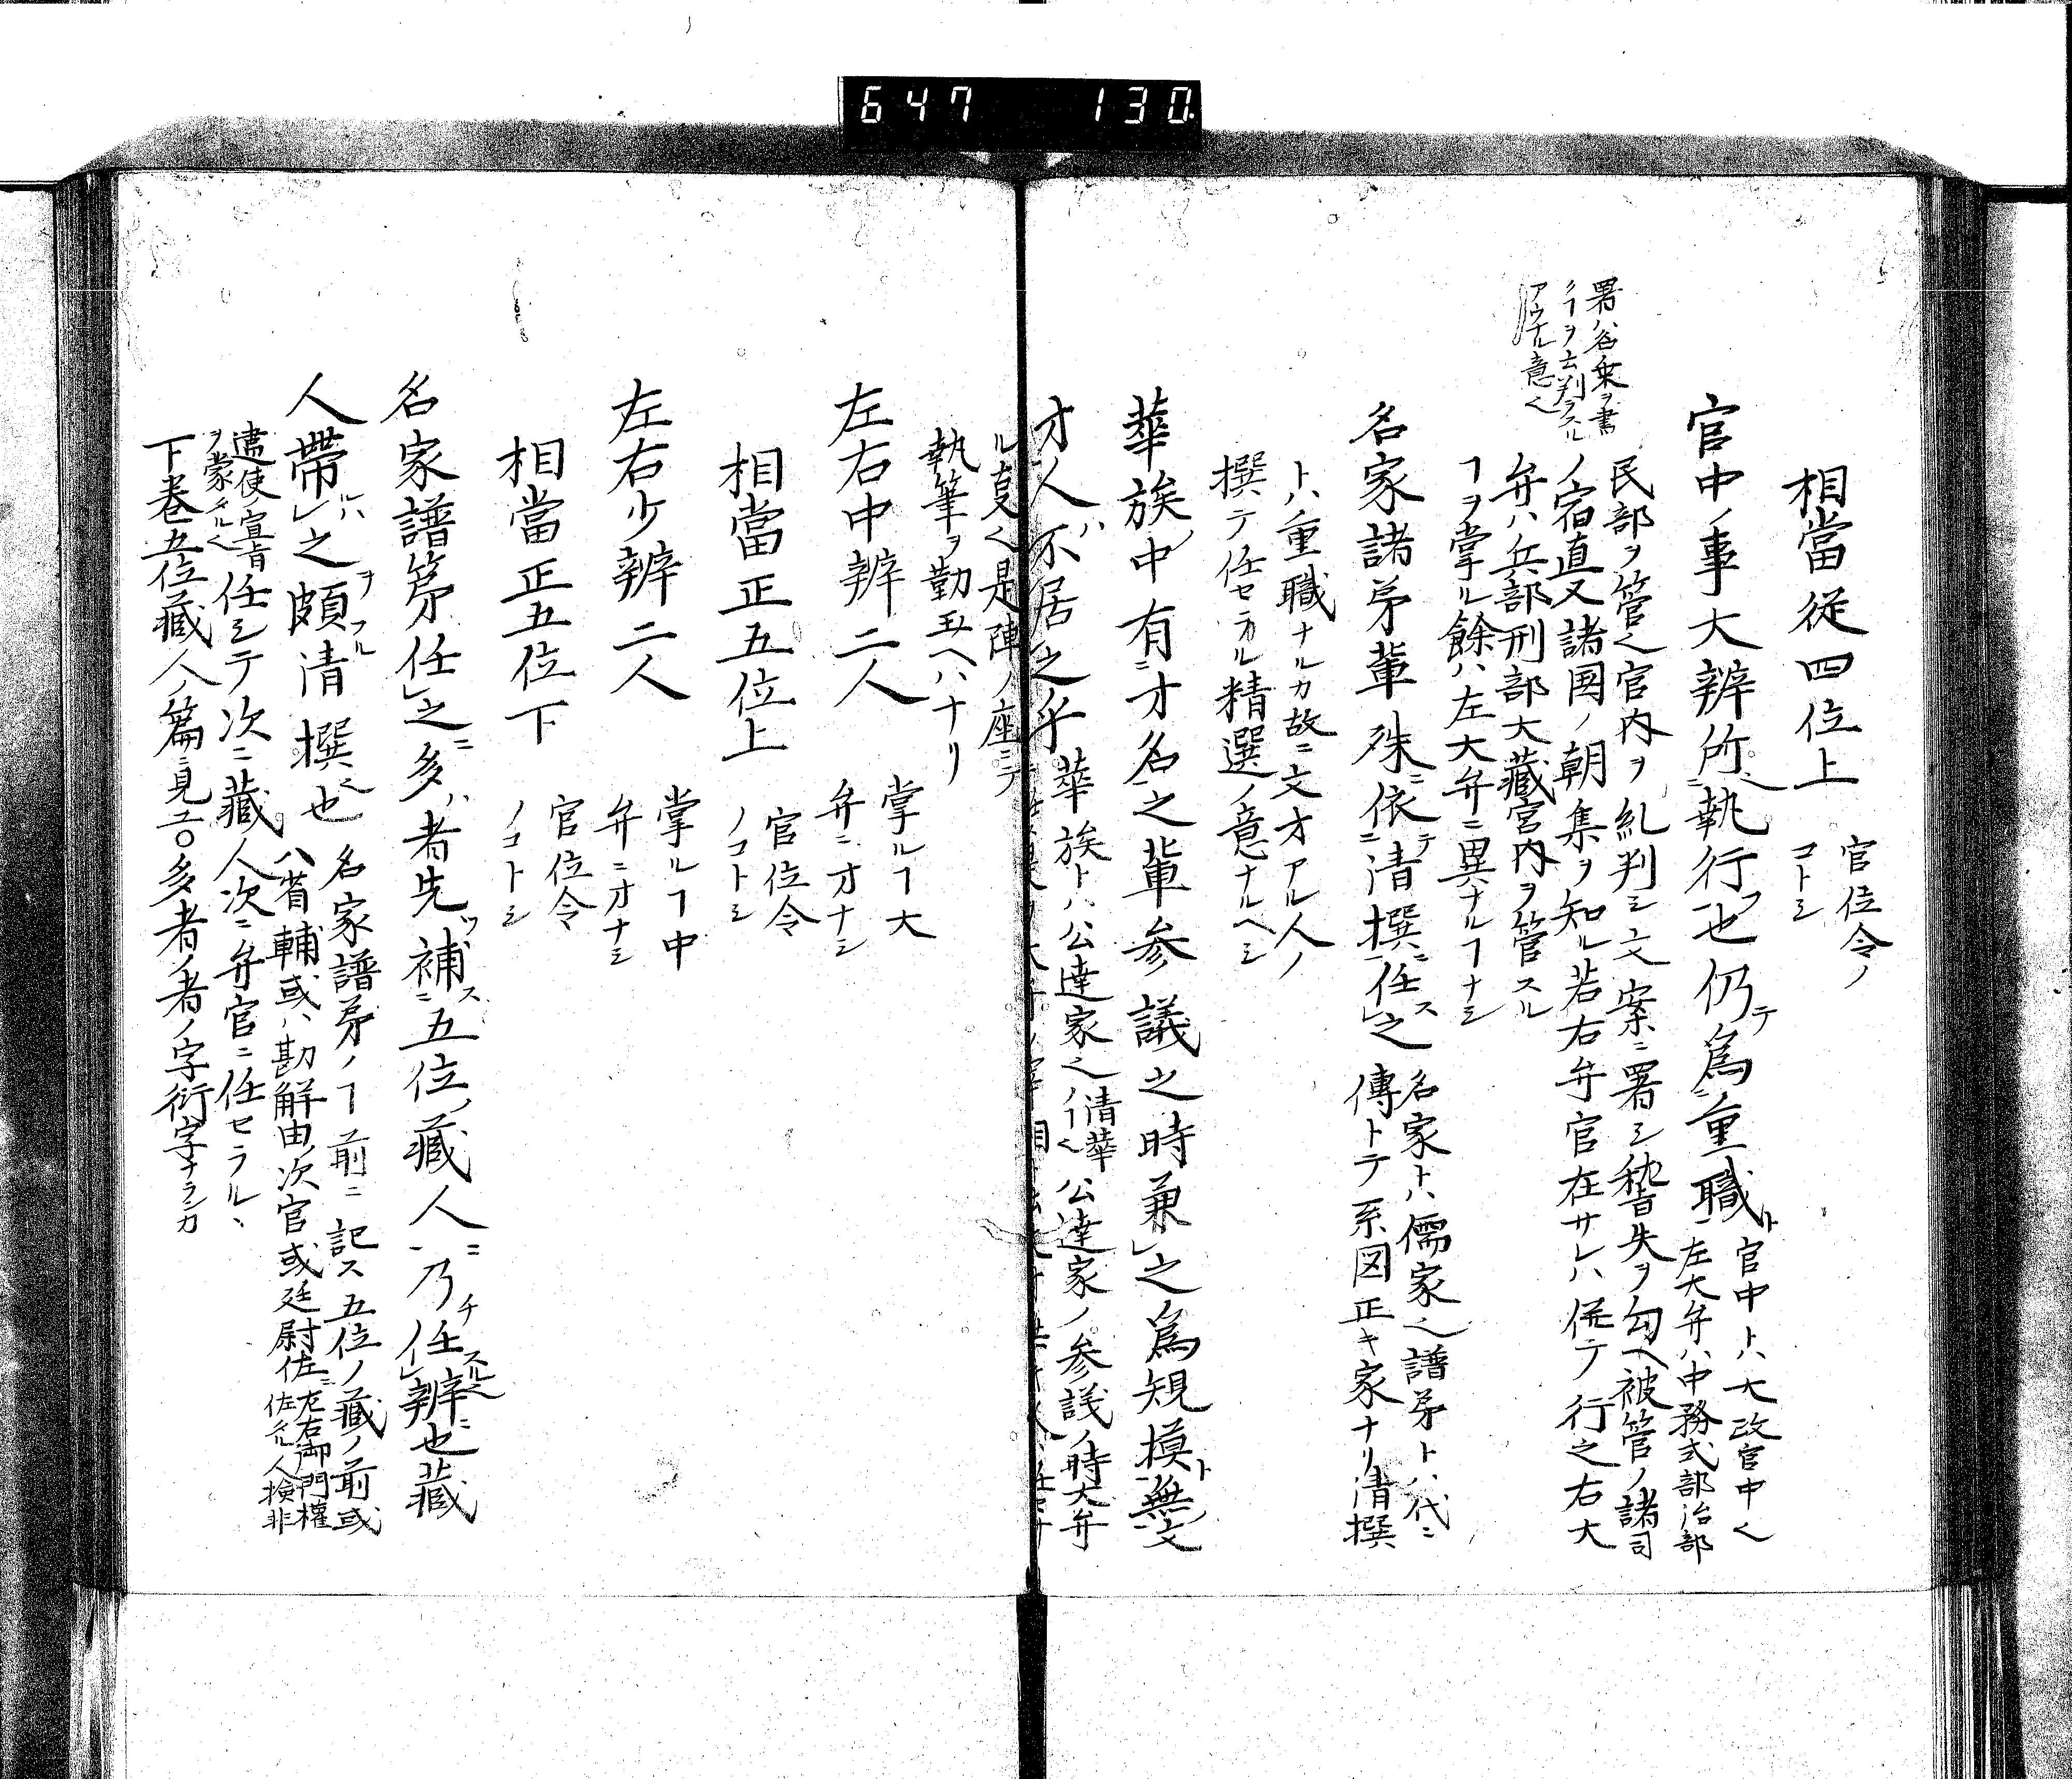 647 130.
相當従四位上 官位令ノ
コトシ
官中ノ事大辨所執行也仍テ爲重職ト 官中トハ大政官中く
左大弁ハ中務式部治部
民部ヲ管く官内ヲ糺判シ文案ニ署シ稽失ヲ勾ヘ被管ノ諸司
ノ宿直又諸国ノ朝集ヲ知ル若右弁官在サレハ併テ行之右大
弁ハ兵部刑部大藏宮内ヲ管スル
ヿヲ掌ル餘ハ左大弁ニ異ナルヿナシ
署ハ名乗ヲ書
クヿヲ云判ヲスル
名家諸苐輩殊ニ依テ清撰ニ任ス之 名家トハ儒家く譜苐トハ代ニ
傳トテ系図正キ家ナリ清撰
トハ重職ナルカ故ニ文才アル人ノ
撰テ任セラルル精選ノ意ナルヘシ
華族ノ中有才名之輩参議之時兼之爲規摸ト無文
才人ハ不居之乎 華族トハ公達家く清華ノヿく公達家ノ参議ノ時大弁
ル夏く是陣ノ座ニテ
執筆ヲ勤玉ヘハナリ
左右中辨二人 掌ルヿ大
弁ニ才ナシ
相當正五位上 官位令
ノコトシ
左右少辨二人 掌ルヿ中
弁ニ才ナシ
相當正五位下 官位令
ノコトシ
名家譜苐任之多ハ者先ツ補ス五位ノ藏人ニ乃チ任スル辨ニ也藏
人帶ルハ之ヲ頗フル清撰く也 名家譜苐ノヿ前ニ記ス五位ノ藏ノ前或
八省輔或ハ勘解由ノ次官或廷尉佐 左右衛門權
佐タル人撿非
違使ノ宣旨
ヲ蒙タルく 任シテ次ニ藏人次ニ弁官ニ任セラル丶
下巻五位藏人ノ篇ニ見ユ○多者ノ者ノ字衍字ナランカ